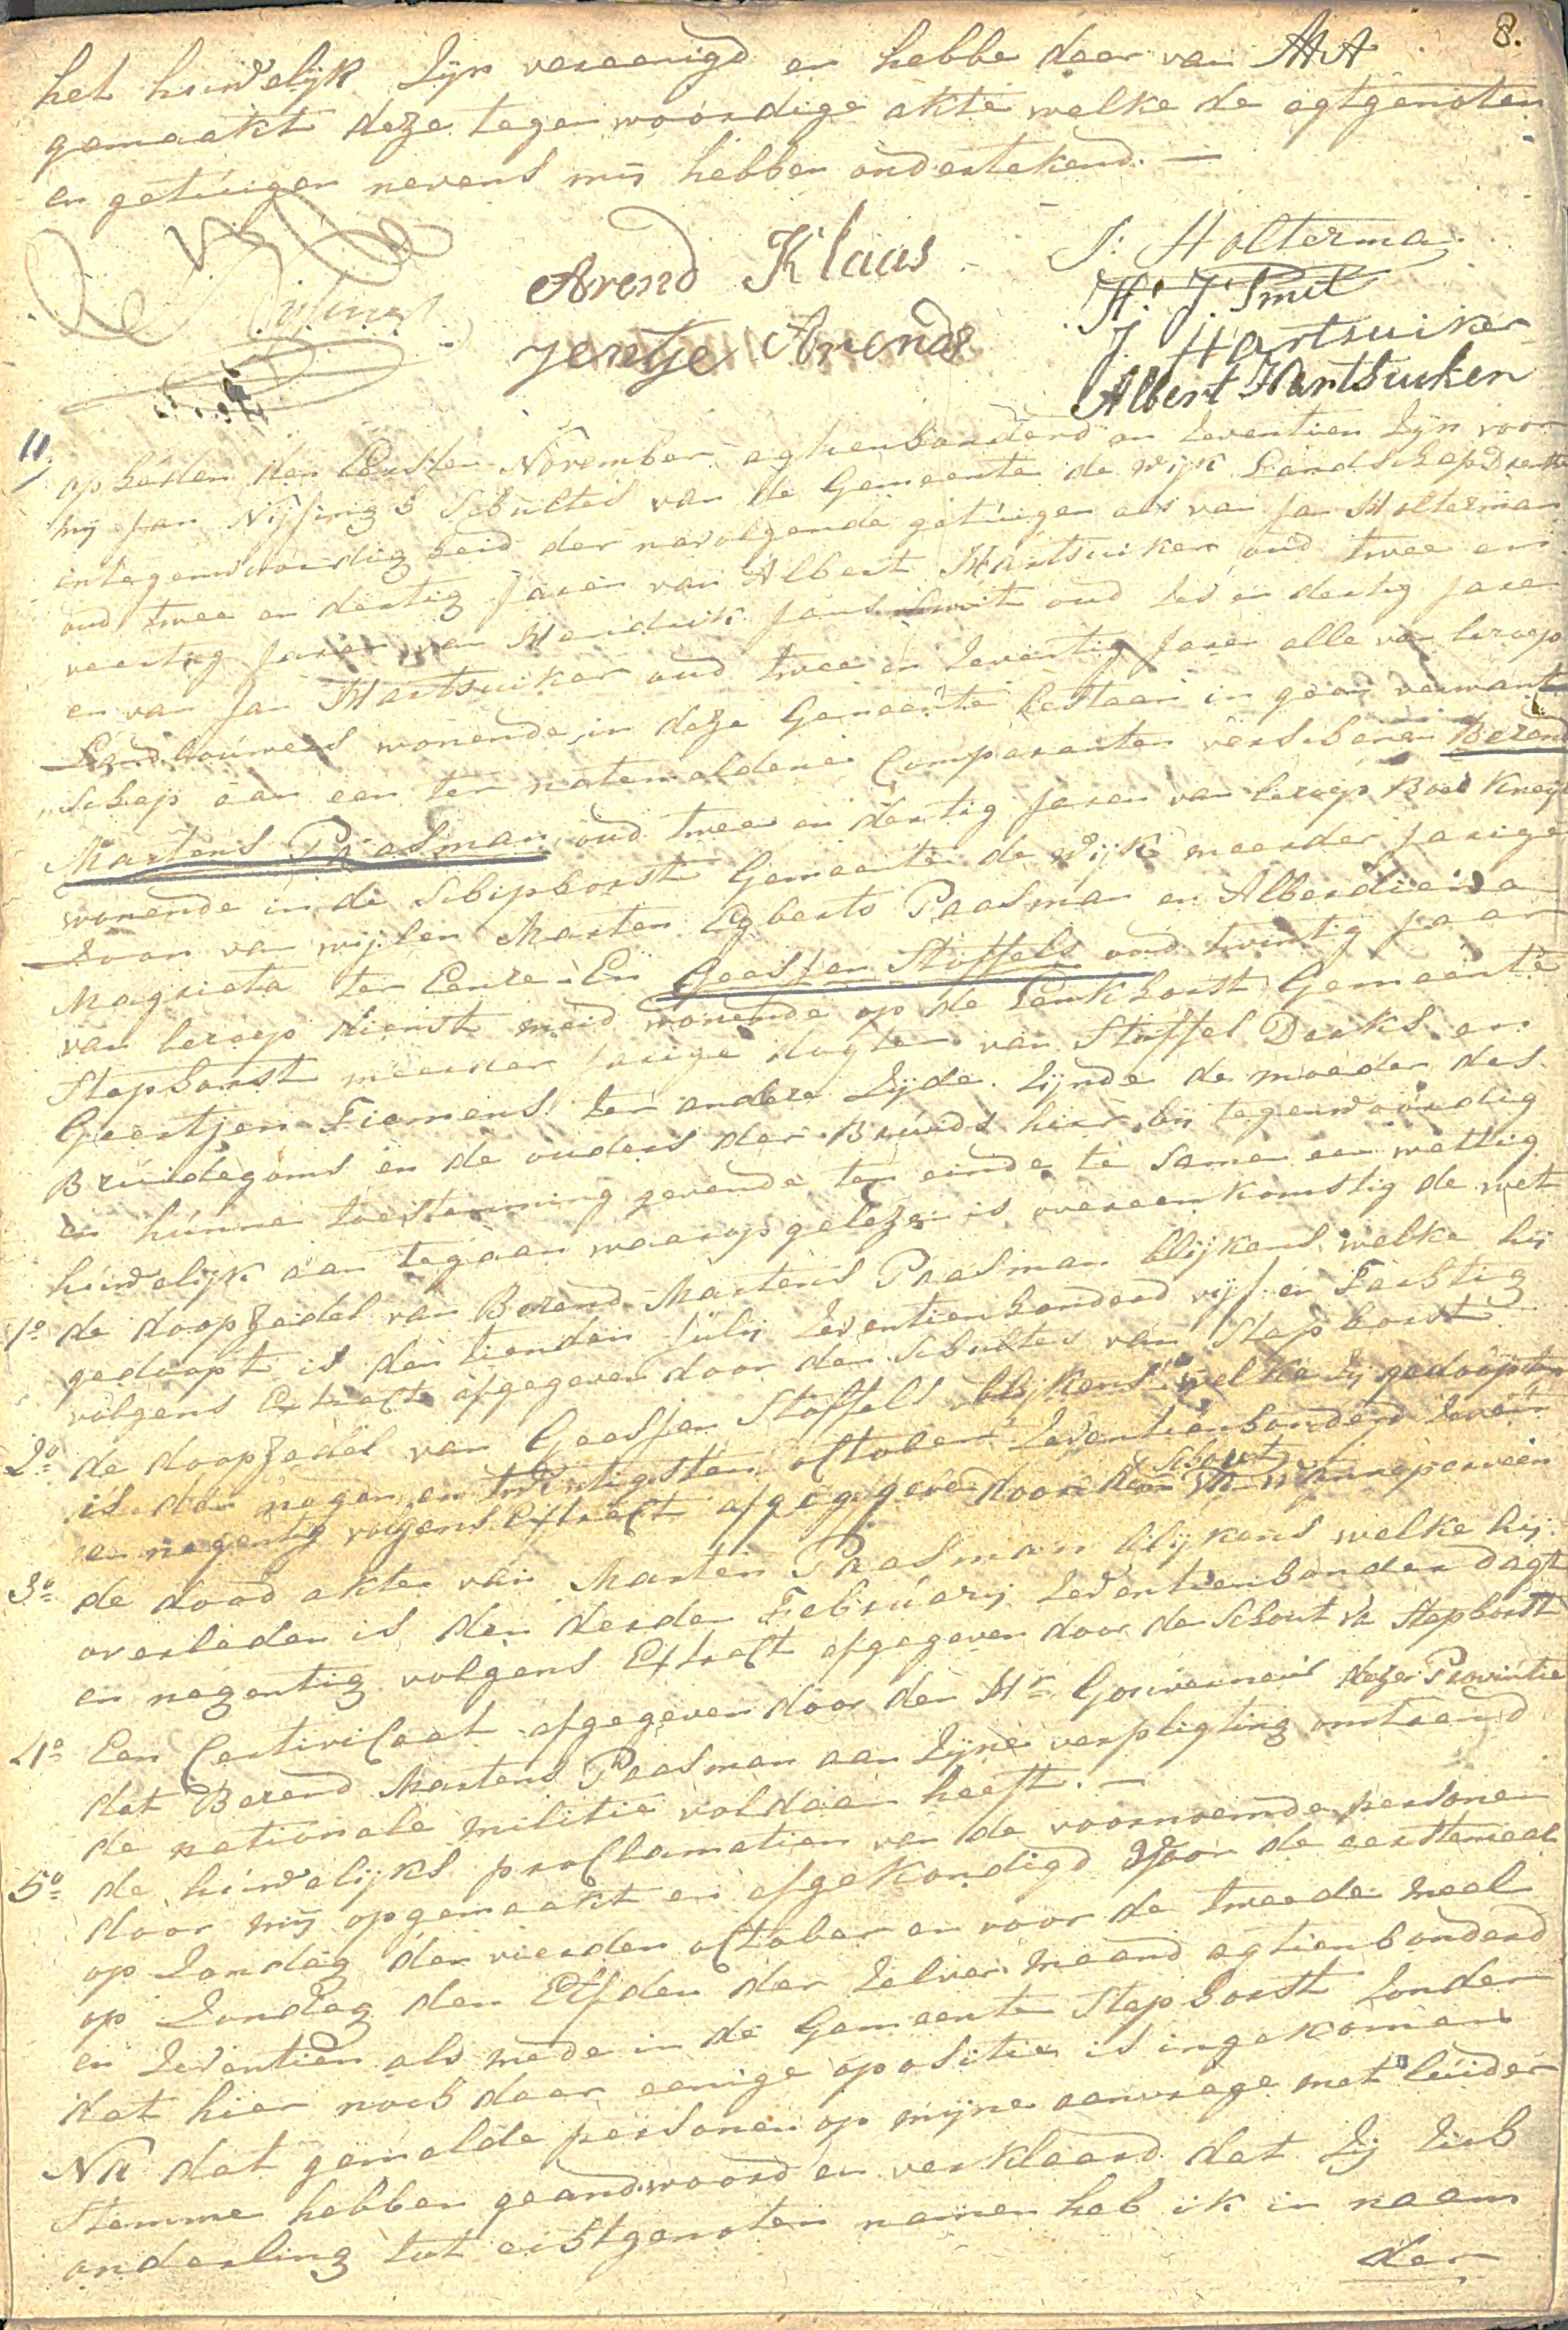 8.
het huwelijk Zijn vereenigd en hebbe daar van
gemaakt deze tegenwoordige akte welke de egtgenoten
en getuigen nevens mij hebben ondertekend. —
Arend Klaas
Jentje Arends
J: Holterman
H: J: Smit
J Hartsuiker
Albert Hartsuiker
11
op heden den Eersten November agtienhonderd en Zeventien Zijn voor
mij Jan Nijsingh Schultes van de Gemeente de Wijk Landschap Drenthe
in tegenwoordigheid der navolgende getuigen als van Jan Holterman
oud twee en dertig Jaren van Albert Hartsuiker oud twee en
veertig Jaren van Hendrik Jans Smit oud Zes en dertig Jaren
en van Jan Hartsuiker oud twee en Zeventig Jaren alle van beroep
Landbouwers wonende in deze Gemeente bestaan in geen verwant
"schap aan een ter natemeldene Comparanten verschenen Berend
Martens Paasman, oud twee en dertig Jaren van beroep Boere Knegt
wonende in de Schiphorst Gemeente de Wijk meerder Jarige
Zoon van wijlen Marten Egberts Paasman en Alberdiena
Magrieta ter Eenre. En Geesjen Stoffels oud twintig Jaar
van beroep dienst meid wonende op de Lankhorst Gemeente
Staphorst meerder Jarige dogter van Stoffel Derks en
Geertjen Fiemens ter andere Zijde. Zijnde de moeder des
Bruidegoms en de ouders der Bruids hier bij tegenwoordig
en hunne toestemming gevende ten einde te samen een wettig
huwelijk aan tegaan waar op gelezen is overeenkomstig de wet
1o de doopzedel van Berend Martens Paasman blijkens welke hij
gedoopt is den tienden July Zeventienhonderd vijf en Tachtig
volgens Extract afgegeven door den Schultes van Staphorst
2o de doopzedel van Geesjen Stoffels blijkens welke Zij gedoopt
is den negen en twintigsten october Zeventienhonderd Zeven
en negentig volgens Extract afgegeven door den Schout van Nanneperveen
3o de dood akte van Marten Paasman blijkens welke hij
overleden is den derden February Zeventienhonderdagt
en negentig volgens Extract afgegeven door de Schout van Staphorst
4o Een Certivicaat afgegeven door den Hr Gouverneur dezer Provintie
dat Berend Martens Paasman aan Zijne verpligting omtrend
de nationale militie voldaan heeft. —
5o de huwelijks proclamatien van de voornoemde personen
door mij opgemaakt en afgekondigd voor de eerstemaal
op Zondag den vierden october en voor de tweede maal
op Zondag den Elfden der Zelver maand agtienhonderd
en Zeventien als mede in de Gemeente Staphorst Zonder
dat hier noch daar eenige opositie is ingekomen
Na dat gemelde personen op mijne aanvrage met luider
Stemme hebben geandwoord en verklaard dat Zij Zich
onderling tot echtgenoten namen heb ik in naam
der